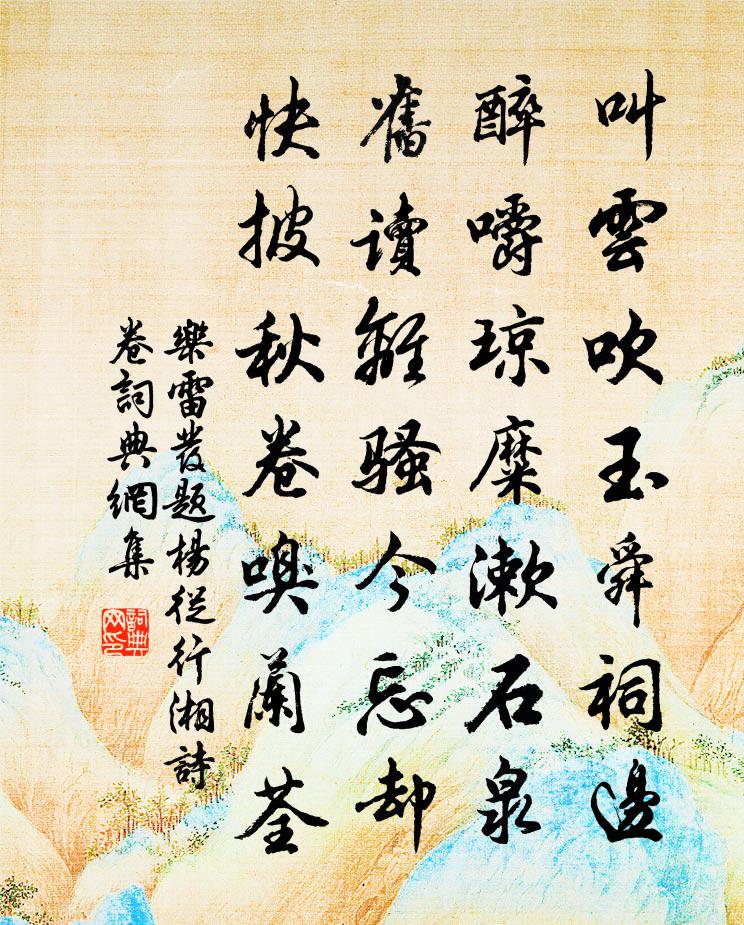 叫雲吹玉舜祠邊
醉嚼琼糜漱石泉
舊读離骚今忘却
快披秋卷嗅蘭荃
樂雷發题楊從行湘詩
卷詞典網集
詞典